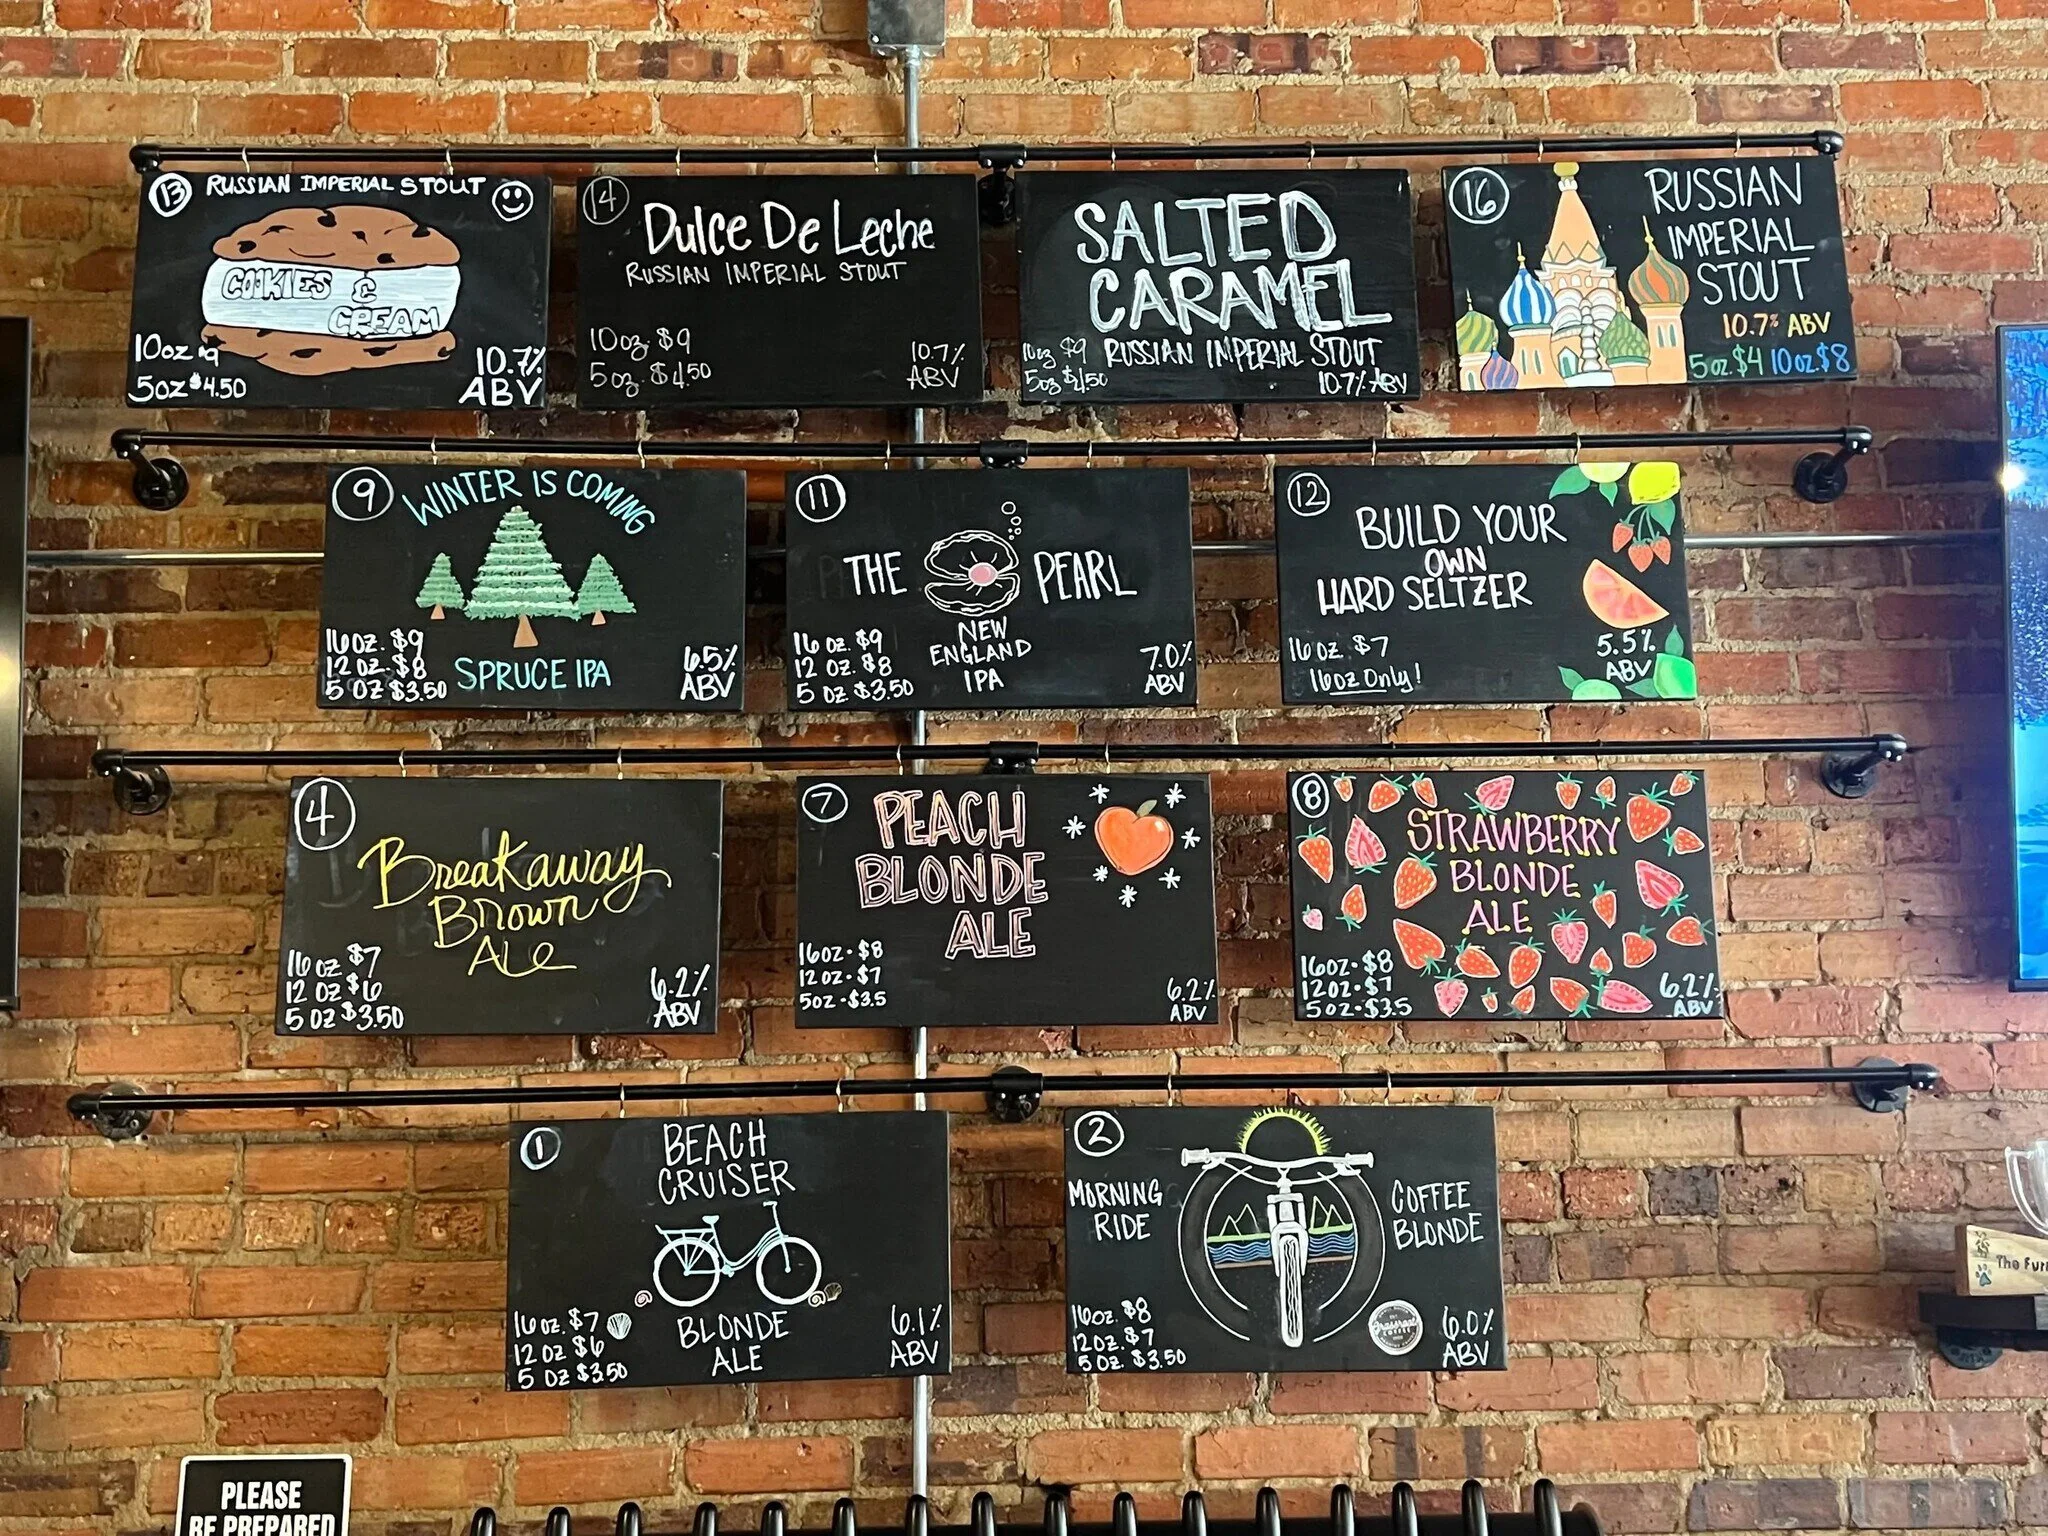 13 RUSSIAN IMPERIAL STOUT
COOKIES &
CREAM
10oz $9
5oz $4.50
10.7%
ABV
14
Dulce De Leche
RUSSIAN IMPERIAL STOUT
10oz. $9
5oz. $4.50
10.7%
ABV
SALTED
CARAMEL
RUSSIAN IMPERIAL STOUT
10oz $9
5oz $4.50
10.7% ABV
16
RUSSIAN
IMPERIAL
STOUT
10.7% ABV
5oz $4 10oz $8
9
WINTER IS COMING
SPRUCE IPA
16oz. $9
12oz. $8
5 oz $3.50
6.5%
ABV
11
THE PEARL
NEW
ENGLAND
IPA
16 oz. $9
12 oz. $8
5 oz $3.50
7.0%
ABV
12
BUILD YOUR
OWN
HARD SELTZER
16oz $7
16oz Only!
5.5%
ABV
4
Breakaway
Brown
ALe
16oz $7
12 oz $6
5 oz $3.50
6.2%
ABV
7
PEACH
BLONDE
ALE
16oz - $8
12oz - $7
5oz - $3.5
6.2%
ABV
8
STRAWBERRY
BLONDE
ALE
16oz - $8
12oz - $7
5oz - $3.5
6.2%
ABV
1
BEACH
CRUISER
BLONDE
ALE
16oz. $7
12 oz $6
5 oz $3.50
6.1%
ABV
2
MORNING
RIDE
COFFEE
BLONDE
16oz. $8
12oz. $7
5 oz. $3.50
6.0%
ABV
The
PLEASE
BE PREPARED